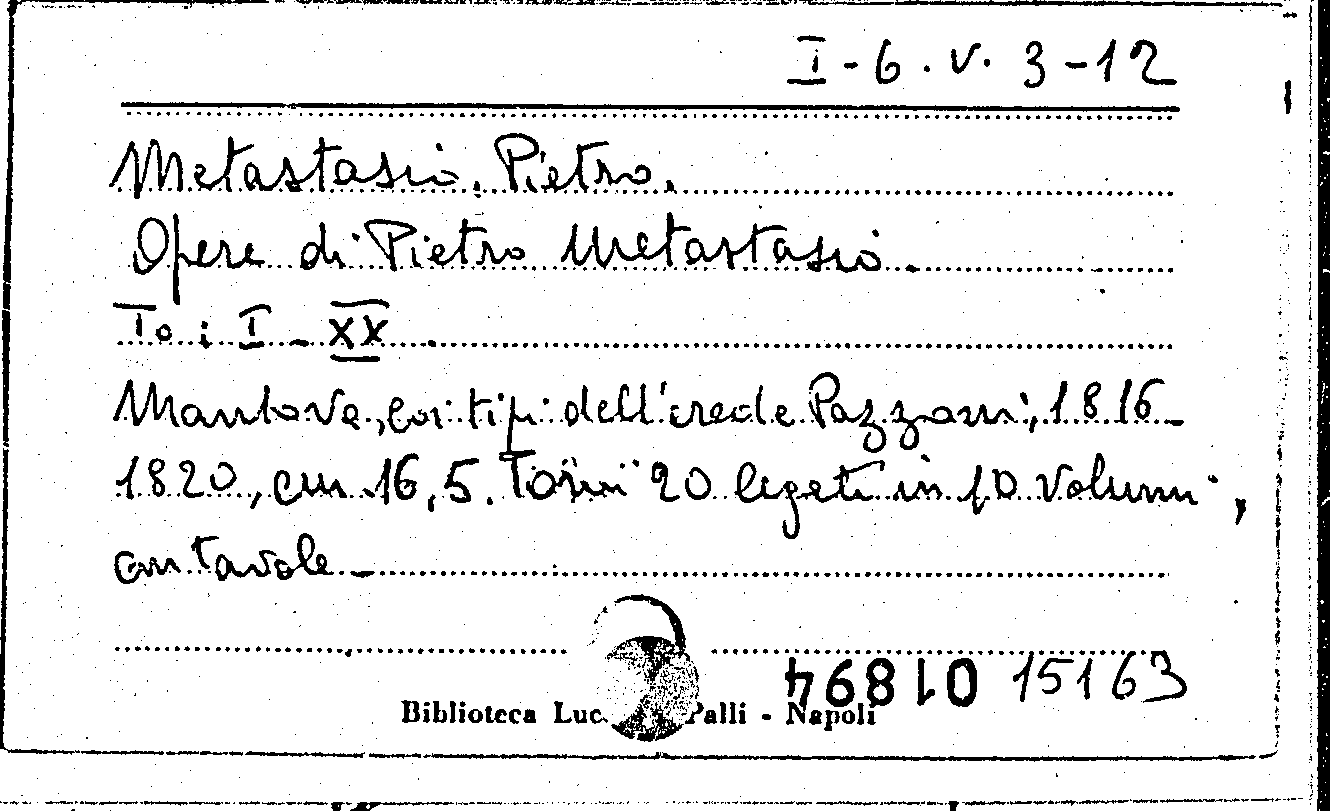 I-6.V.3-12
Metastasio, Pietro.
Opere di Pietro Metastasio.
To: I-XX.
Mantova, coi tipi dell'erede Pazzoni, 1816-
1820, cm. 16,5. Tomi 20 legati in 10 volumi,
con tavole-
01894 15163
Biblioteca Luc. Palli - Napoli